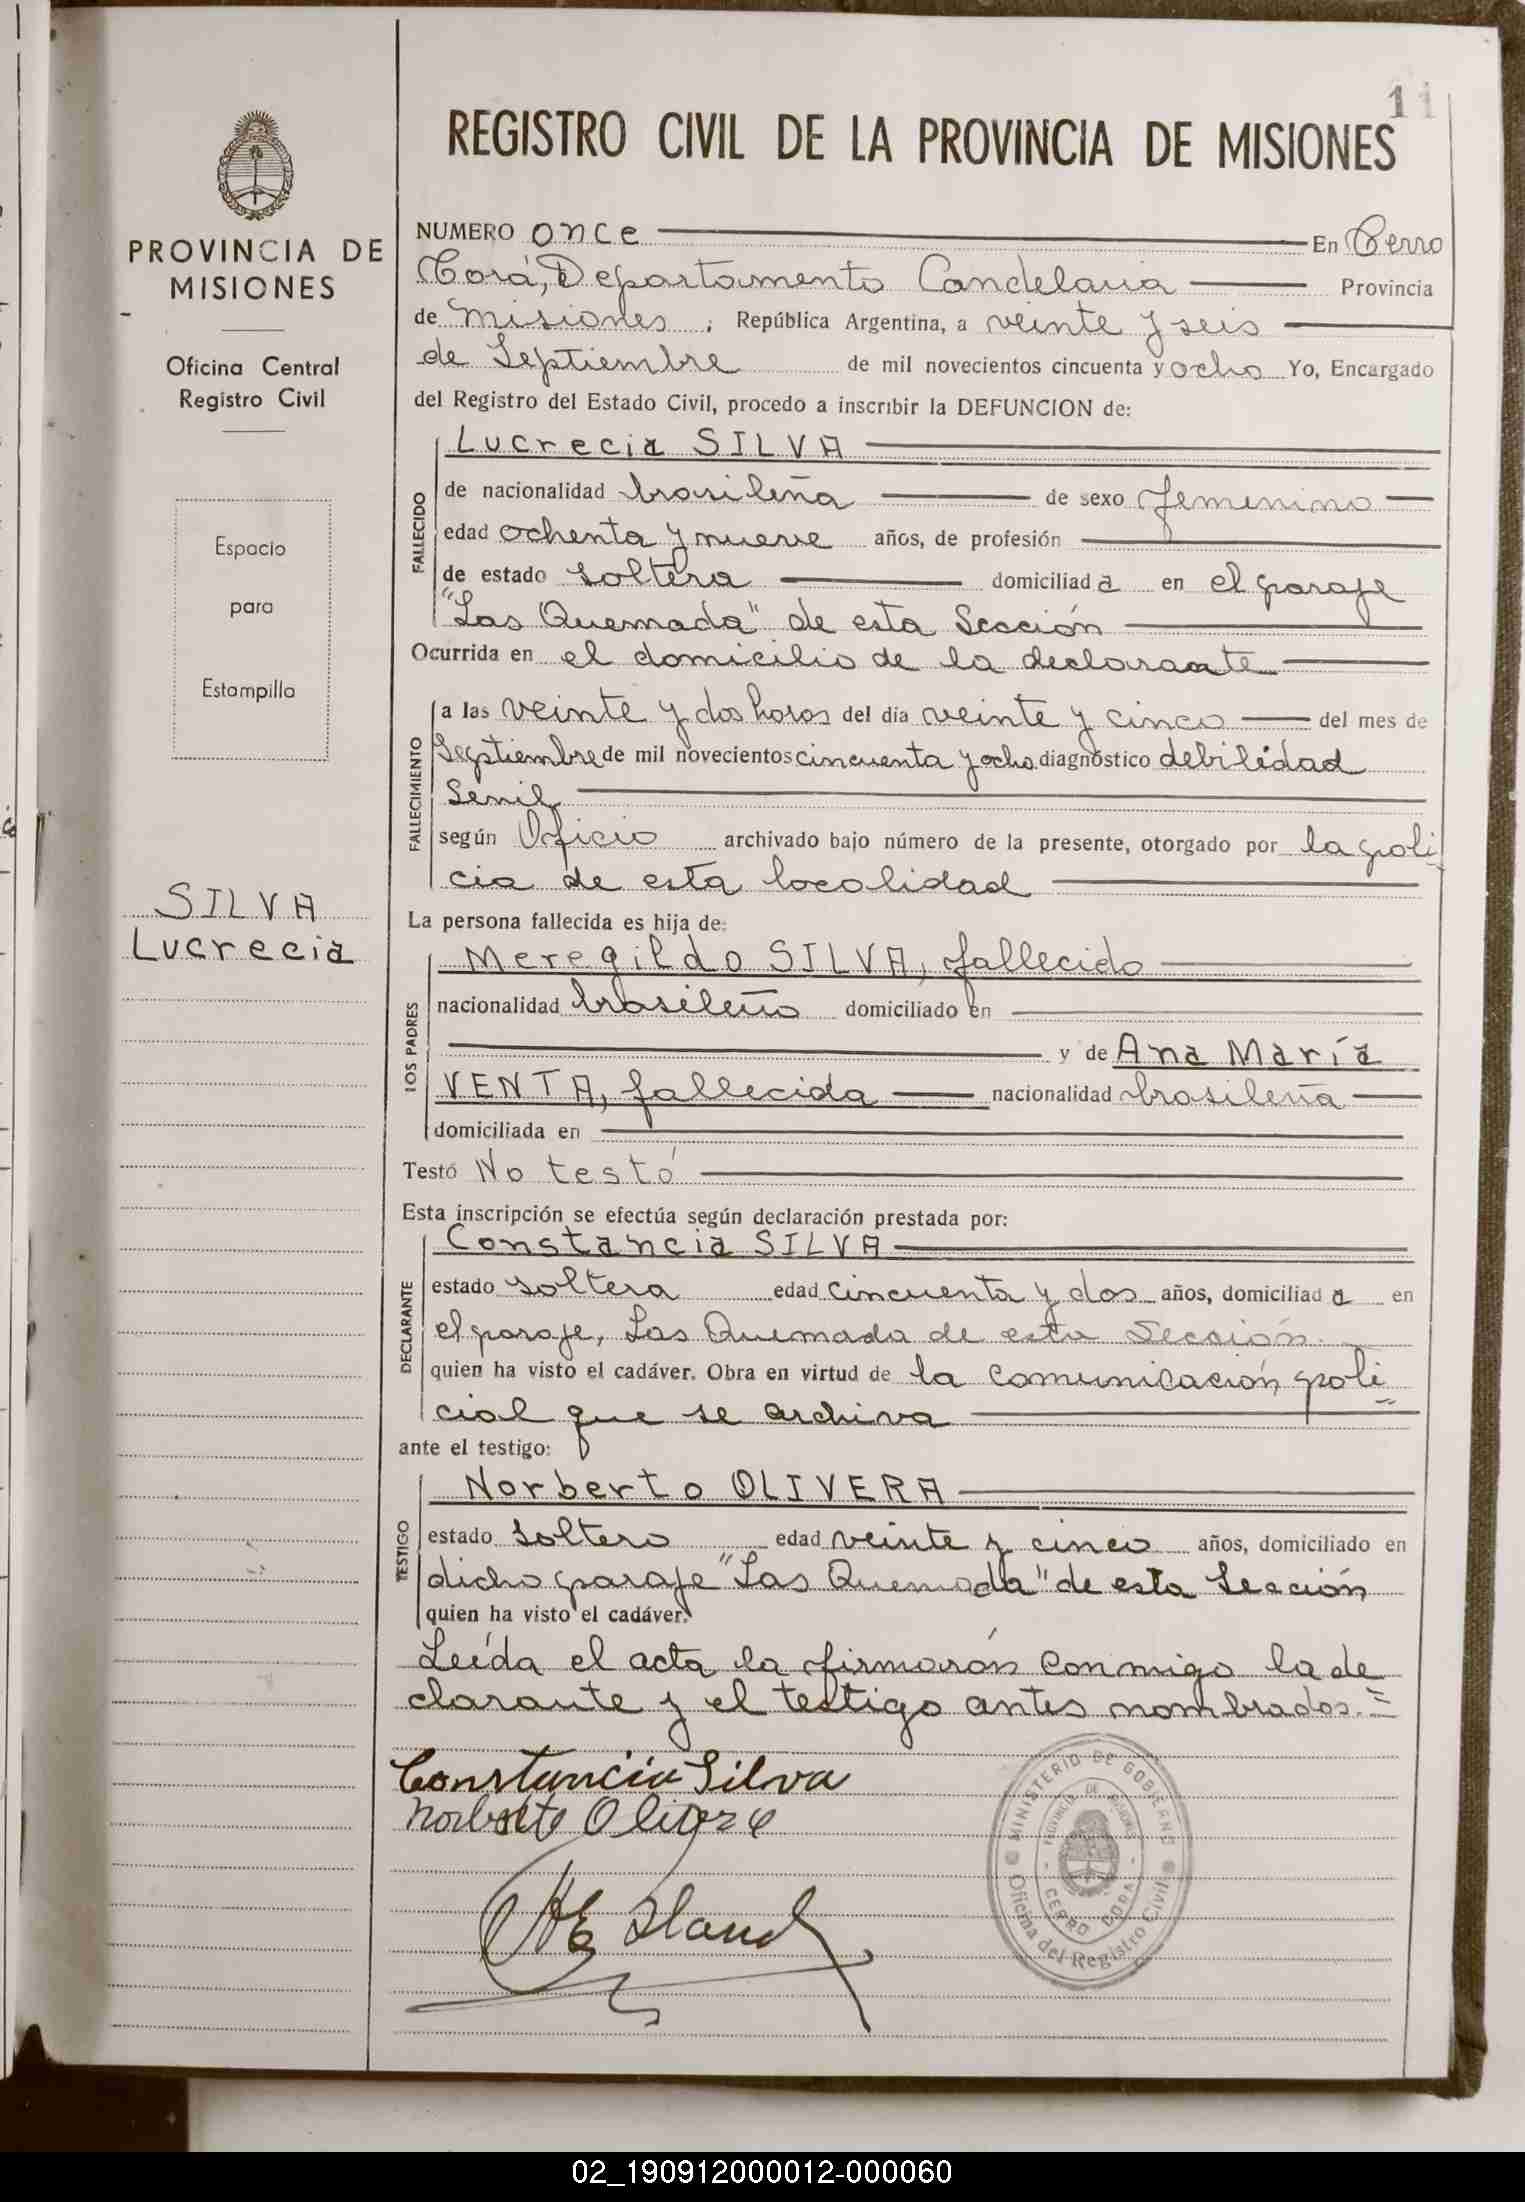 11
REGISTRO CIVIL DE LA PROVINCIA DE MISIONES
PROVINCIA DE
MISIONES
Oficina Central
Registro Civil
Espacio
para
Estampilla
SILVA
Lucrecia
NUMERO once En Cerro
Corá, Departamento Candelaria Provincia
de Misiones ; República Argentina, a veinte y seis
de Septiembre de mil novecientos cincuenta y ocho Yo, Encargado
del Registro del Estado Civil, procedo a inscribir la DEFUNCION de:
FALLECIDO
Lucrecia SILVA
de nacionalidad brasileña de sexo femenino
edad ochenta y nueve años, de profesión
de estado soltera domiciliad a en el paraje
"Las Quemada" de esta Sección
Ocurrida en el domicilio de la declarante
FALLECIMIENTO
a las veinte y dos horas del día veinte y cinco del mes de
Septiembre de mil novecientos cincuenta y ocho diagnóstico debilidad
Senil
según Oficio archivado bajo número de la presente, otorgado por la poli-
cia de esta localidad
La persona fallecida es hija de:
LOS PADRES
Meregildo SILVA, fallecido
nacionalidad brasileño domiciliado en
y de Ana María
VENTA, fallecida nacionalidad brasileña
domiciliada en
Testó No testó
Esta inscripción se efectúa según declaración prestada por:
DECLARANTE
Constancia SILVA
estado soltera edad cincuenta y dos años, domiciliad a en
el paraje, Las Quemada de esta Sección.
quien ha visto el cadáver. Obra en virtud de la comunicación poli=
cial que se archiva
ante el testigo:
TESTIGO
Norberto OLIVERA
estado soltero edad veinte y cinco años, domiciliado en
dicho paraje "Las Quemada" de esta Sección
quien ha visto el cadáver.
Leída el acta la firmarón conmigo la de=
clarante y el testigo antes nombrados.=
Constancia Silva
Norberto Olivera
MINISTERIO DE GOBIERNO
PROVINCIA DE MISIONES
CERRO CORA
Oficina del Registro Civil
02_190912000012-000060